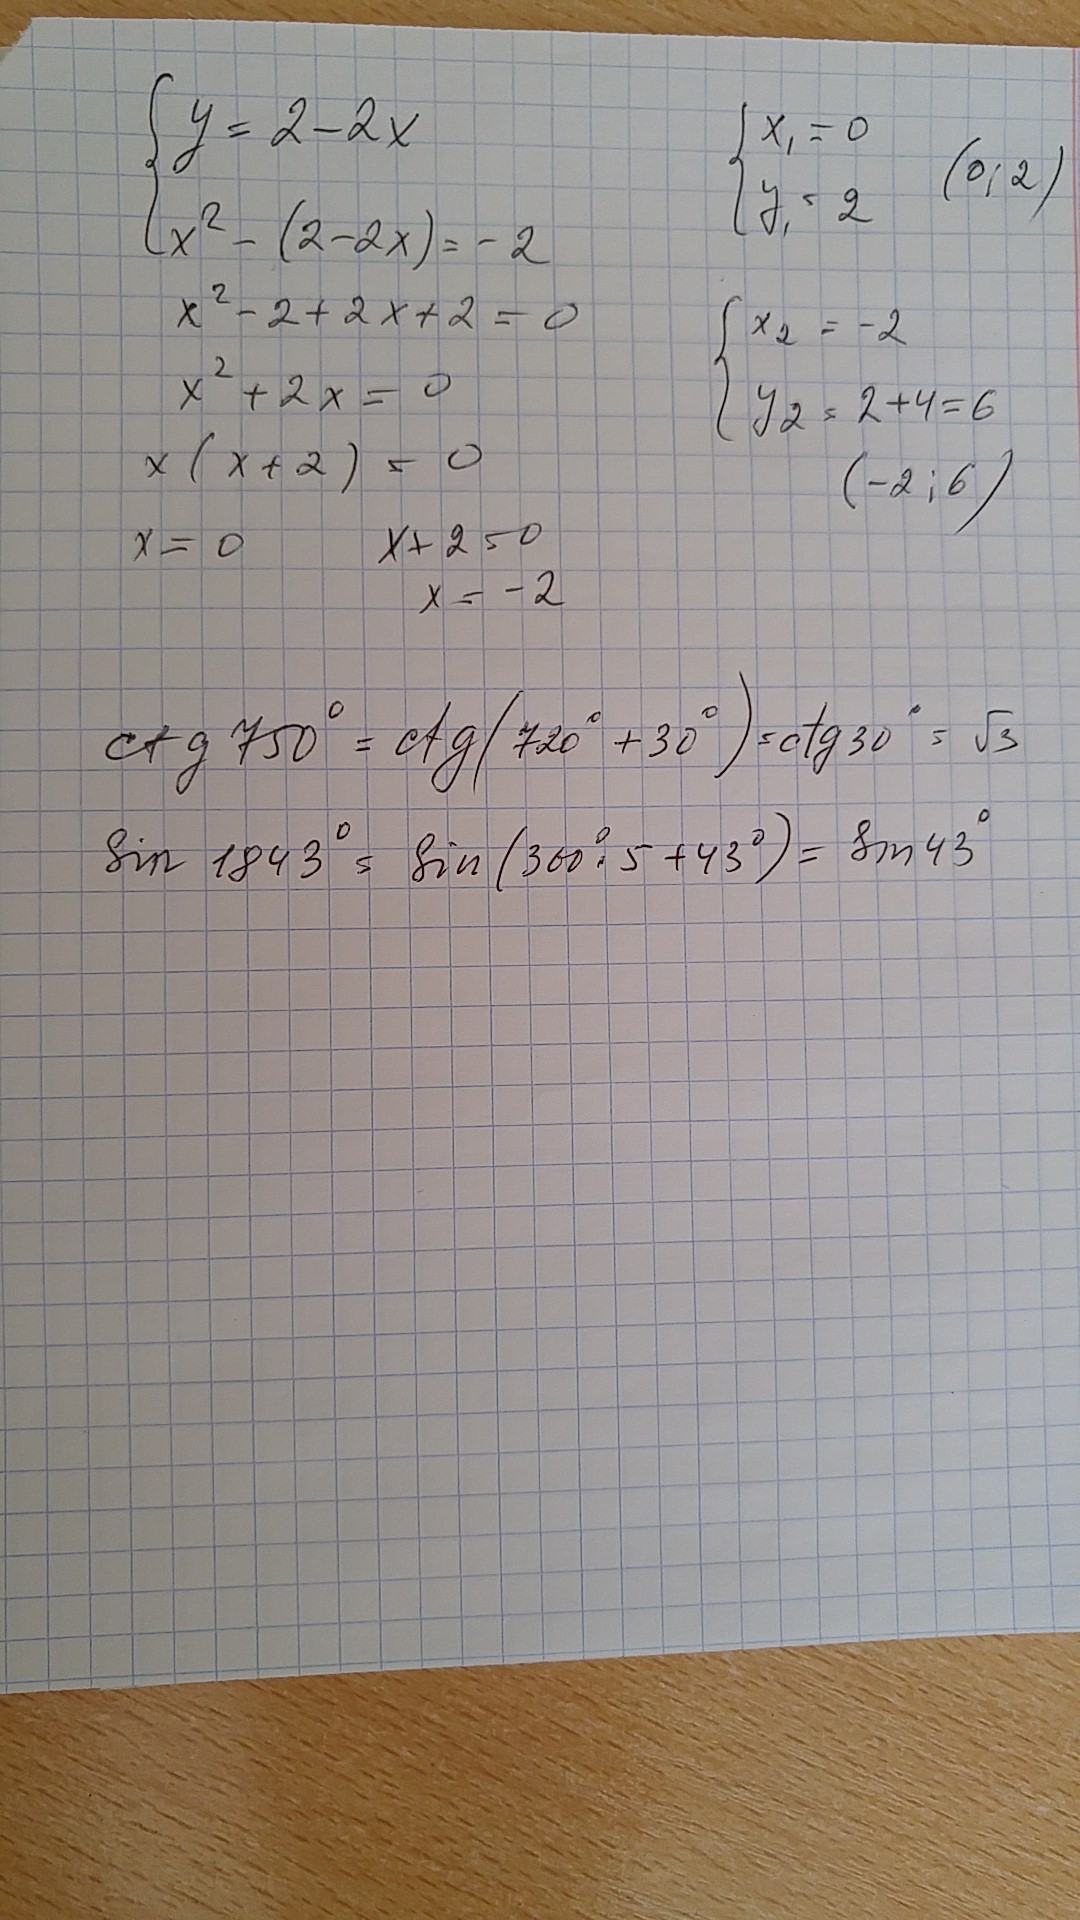 { y = 2 - 2x
x² - (2 - 2x) = -2
x² - 2 + 2x + 2 = 0
x² + 2x = 0
x(x + 2) = 0
x = 0    x + 2 = 0
x = -2
{ x₁ = 0
y₁ = 2    (0; 2)
{ x₂ = -2
y₂ = 2 + 4 = 6
(-2; 6)
ctg 750° = ctg(720° + 30°) = ctg 30° = √3
Sin 1843° = Sin(360°·5 + 43°) = Sin 43°